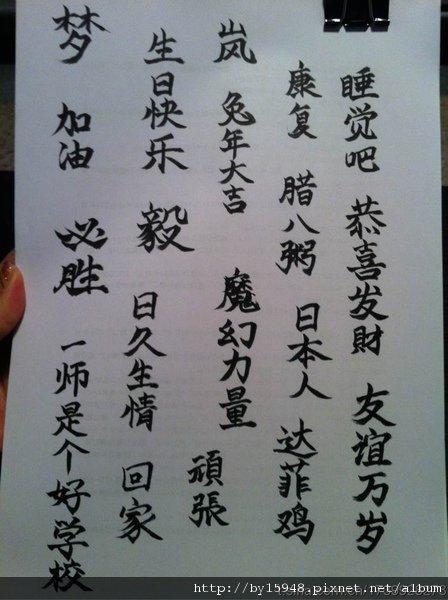 睡觉吧 恭喜发財 友谊万岁
康复 腊八粥 日本人 达菲鸡
岚 兔年大吉 魔幻力量 頑張
生日快乐 毅 日久生情 回家
梦 加油 必胜 一师是个好学校
http://by15948.pixnet.net/album